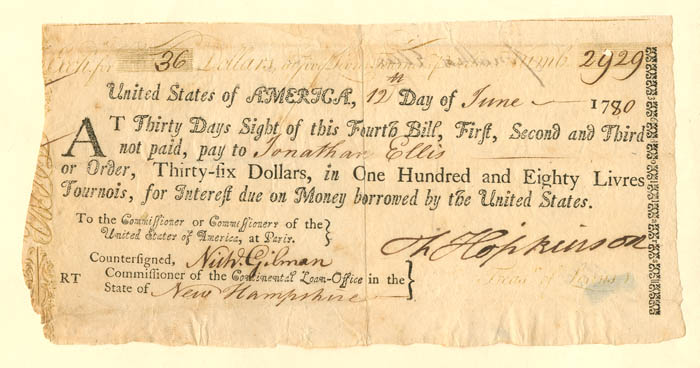 36 Dollars Numb. 2929
United States of AMERICA, 12th Day of June 1780
AT Thirty Days Sight of this Fourth Bill, First, Second and Third
not paid, pay to Jonathan Ellis
or Order, Thirty-six Dollars, in One Hundred and Eighty Livres
Tournois, for Interest due on Money borrowed by the United States.
To the Commissioner or Commissioners of the
United States of America, at Paris.
Th Hopkinson
Countersigned, Nichs. Gilman
Treasr. of Loans
RT Commissioner of the Continental Loan-Office in the
State of New Hampshire